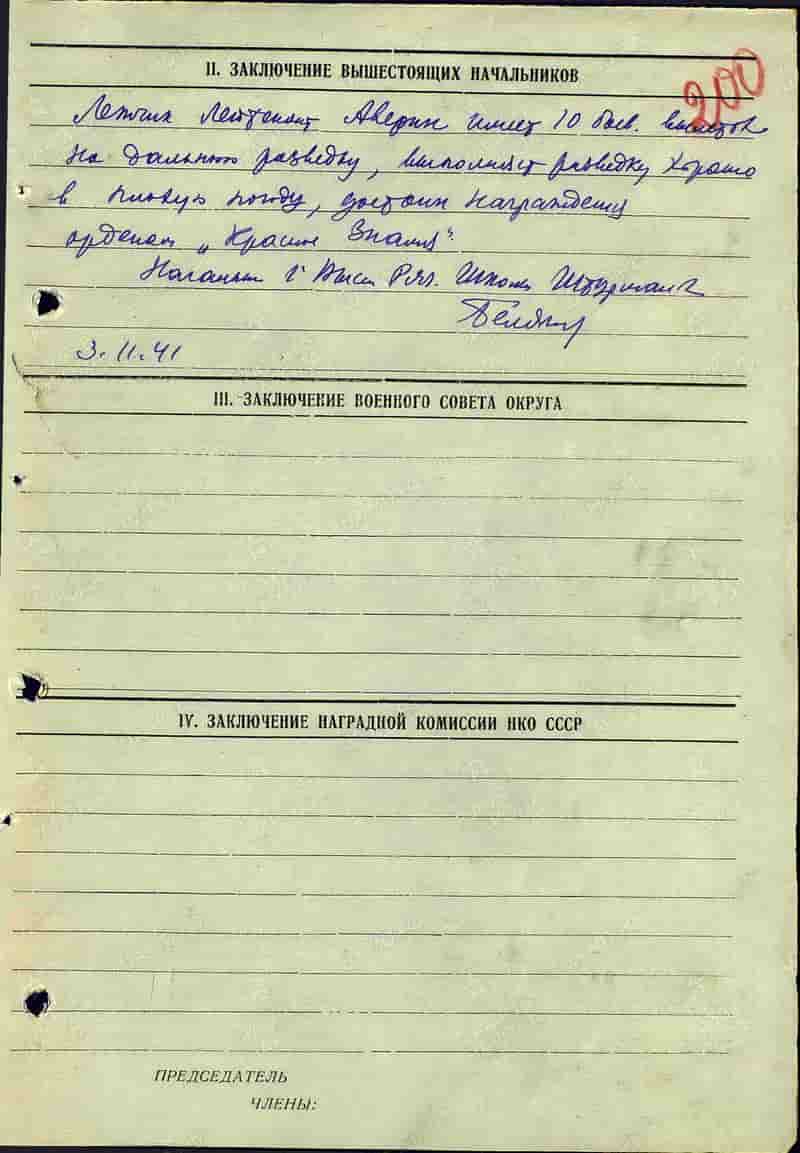 200
II. ЗАКЛЮЧЕНИЕ ВЫШЕСТОЯЩИХ НАЧАЛЬНИКОВ
Летчик Лейтенант Аверин имеет 10 боев. вылетов
на дальнюю разведку, выполняет разведку хорошо
в плохую погоду, достоин награждения
орденом „Красное Знамя".
Начальник 1 Высш Ряз. Школы Штурманов
3.11.41
III. ЗАКЛЮЧЕНИЕ ВОЕННОГО СОВЕТА ОКРУГА
IV. ЗАКЛЮЧЕНИЕ НАГРАДНОЙ КОМИССИИ НКО СССР
ПРЕДСЕДАТЕЛЬ
ЧЛЕНЫ: